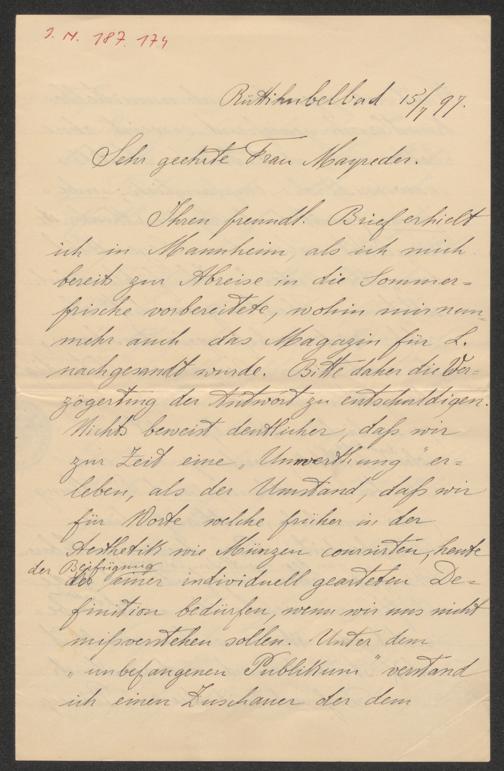 J. N. 187.174
Rüttihubelbad 15/7 97.
Sehr geehrte Frau Mayreder.
Ihren freundl. Brief erhielt
ich in Mannheim, als ich mich
bereits zur Abreise in die Sommer=
frische vorbereitete, wohin mir nun=
mehr auch das Magazin für L.
nachgesandt wurde. Bitte daher die Ver=
zögerung der Antwort zu entschuldigen.
Nichts beweist deutlicher, daß wir
zur Zeit eine „Umwerthung" er=
leben, als der Umstand, daß wir
für Worte welche früher in der
Aesthetik wie Münzen coursirten, heute
der Beifügung
einer individuell gearteten De=
finition bedürfen, wenn wir uns nicht
mißverstehen sollen. Unter dem
„unbefangenen Publikum" verstand
ich einen Zuschauer der dem